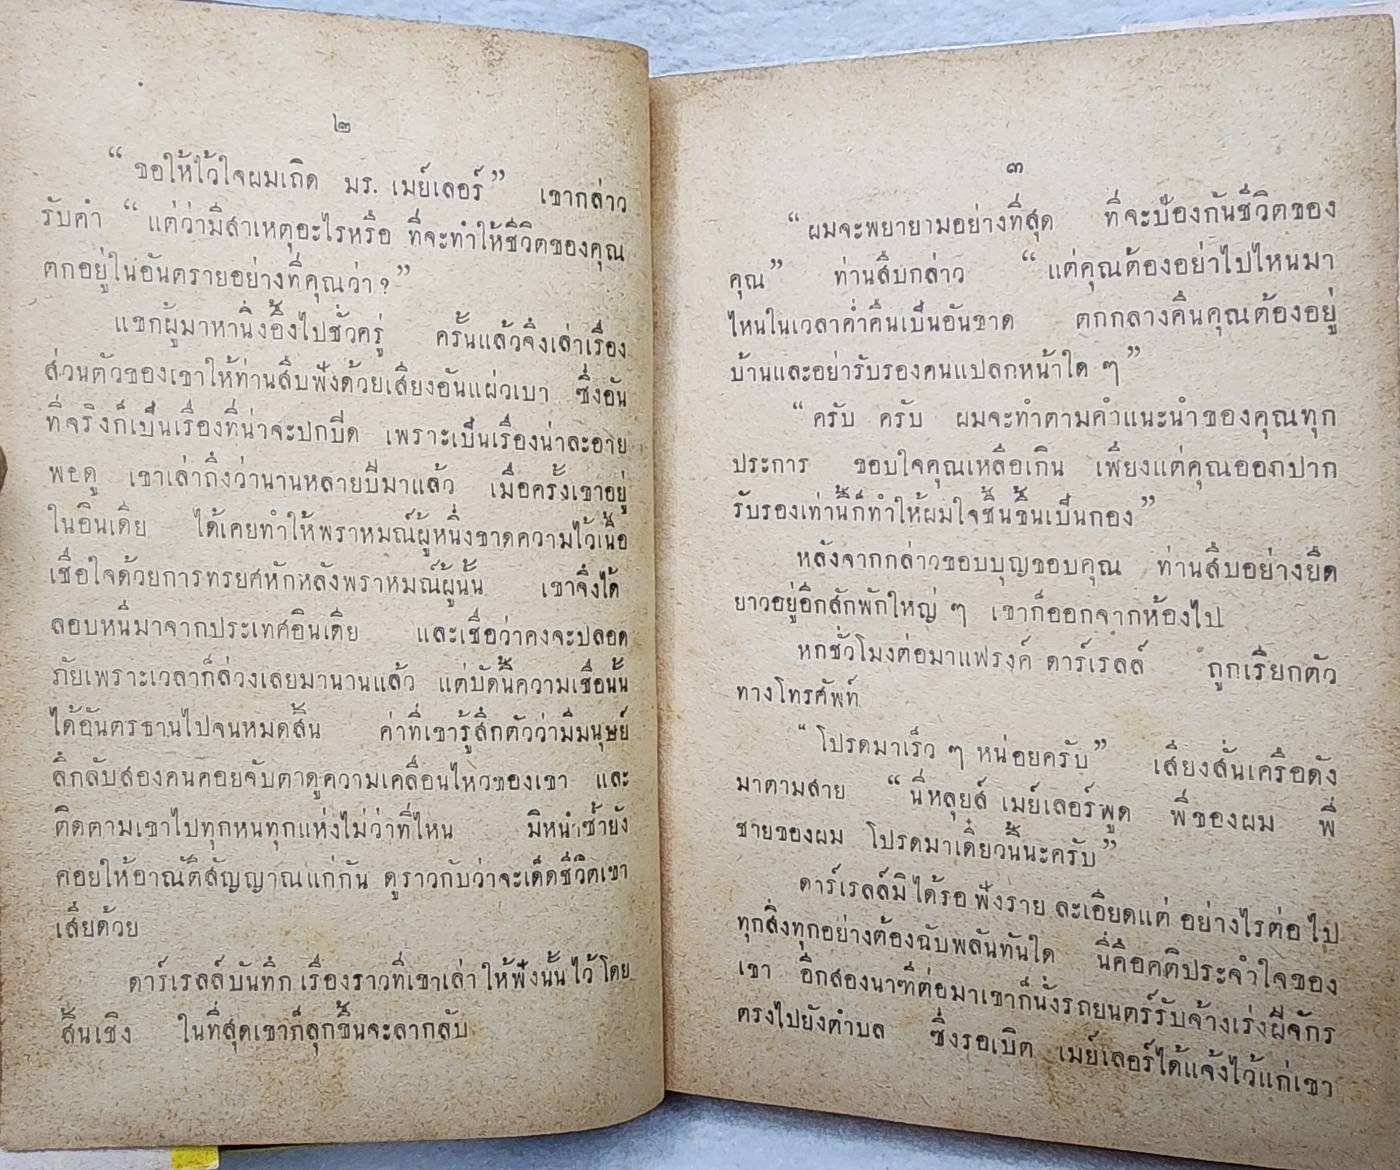 ๒
“ ขอให้ไว้ใจผมเถิด มร. เมย์เลอร์ ” เขากล่าว
รับคำ “ แต่ว่ามีสาเหตุอะไรหรือ ที่จะทำให้ชีวิตของคุณ
ตกอยู่ในอันตรายอย่างที่คุณว่า ? ”
แขกผู้มาหานิ่งอึ้งไปชั่วครู่ ครั้นแล้วจึงเล่าเรื่อง
ส่วนตัวของเขาให้ท่านสืบฟังด้วยเสียงอันแผ่วเบา ซึ่งอัน
ที่จริงก็เป็นเรื่องที่น่าจะปกปีด เพราะเป็นเรื่องน่าละอาย
พอดู เขาเล่าถึงว่านานหลายปีมาแล้ว เมื่อครั้งเขาอยู่
ในอินเดีย ได้เคยทำให้พราหมณ์ผู้หนึ่งขาดความไว้เนื้อ
เชื่อใจด้วยการทรยศหักหลังพราหมณ์ผู้นั้น เขาจึงได้
ลอบหนีมาจากประเทศอินเดีย และเชื่อว่าคงจะปลอด
ภัยเพราะเวลาก็ล่วงเลยมานานแล้ว แต่บัดนี้ความเชื่อนั้น
ได้อันตรธานไปจนหมดสิ้น ค่าที่เขารู้สึกตัวว่ามีมนุษย์
ลึกลับสองคนคอยจับตาดูความเคลื่อนไหวของเขา และ
ติดตามเขาไปทุกหนทุกแห่งไม่ว่าที่ไหน มิหนำซ้ำยัง
คอยให้อาณัติสัญญาณแก่กัน ดูราวกับว่าจะเด็ดชีวิตเขา
เสียด้วย
ดาร์เรลล์บันทึก เรื่องราวที่เขาเล่า ให้ฟังนั้น ไว้ โดย
สิ้นเชิง ในที่สุดเขาก็ลุกขึ้นจะลากลับ
๓
“ ผมจะพยายามอย่างที่สุด ที่จะป้องกันชีวิตของ
คุณ ” ท่านสืบกล่าว “ แต่คุณต้องอย่าไปไหนมา
ไหนในเวลาค่ำคืนเป็นอันขาด ตกกลางคืนคุณต้องอยู่
บ้านและอย่ารับรองคนแปลกหน้าใด ๆ ”
“ ครับ ครับ ผมจะทำตามคำแนะนำของคุณทุก
ประการ ขอบใจคุณเหลือเกิน เพียงแต่คุณออกปาก
รับรองเท่านี้ก็ทำให้ผมใจชื้นขึ้นเป็นกอง ”
หลังจากกล่าวขอบบุญขอบคุณ ท่านสืบอย่างยืด
ยาวอยู่อีกสักพักใหญ่ ๆ เขาก็ออกจากห้องไป
หกชั่วโมงต่อมาแฟรงค์ ดาร์เรลล์ ถูกเรียกตัว
ทางโทรศัพท์
“ โปรดมาเร็ว ๆ หน่อยครับ ” เสียงสั่นเครือดัง
มาตามสาย “ นี่หลุยส์ เมย์เลอร์พูด พี่ของผม พี่
ชายของผม โปรดมาเดี๋ยวนี้นะครับ ”
ดาร์เรลล์มิได้รอ ฟังราย ละเอียดแต่ อย่างไรต่อ ไป
ทุกสิ่งทุกอย่างต้องฉับพลันทันใด นี่คือคติประจำใจของ
เขา อีกสองนาฑีต่อมาเขาก็นั่งรถยนตร์รับจ้างเร่งฝีจักร
ตรงไปยังตำบล ซึ่งรอเบิต เมย์เลอร์ได้แจ้งไว้แก่เขา